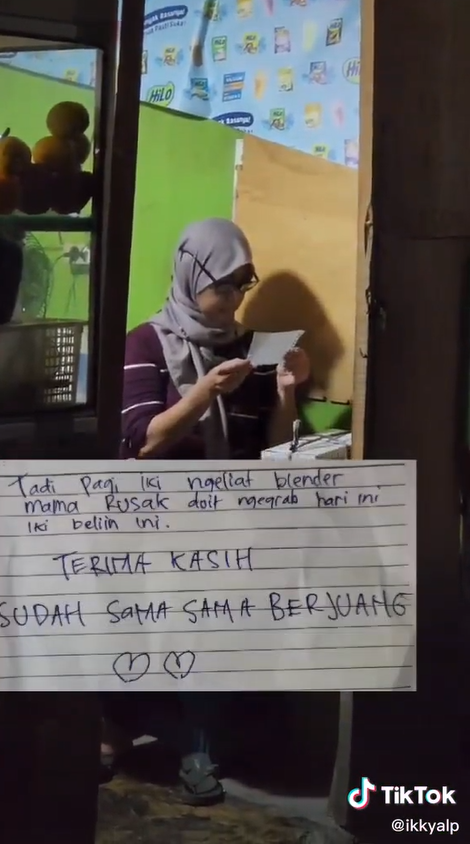 HiLO
Tadi pagi iki ngeliat blender
mama Rusak doit ngegrab hari ini
iki beliin ini.
TERIMA KASIH
SUDAH SAMA SAMA BERJUANG
TikTok
@ikkyalp